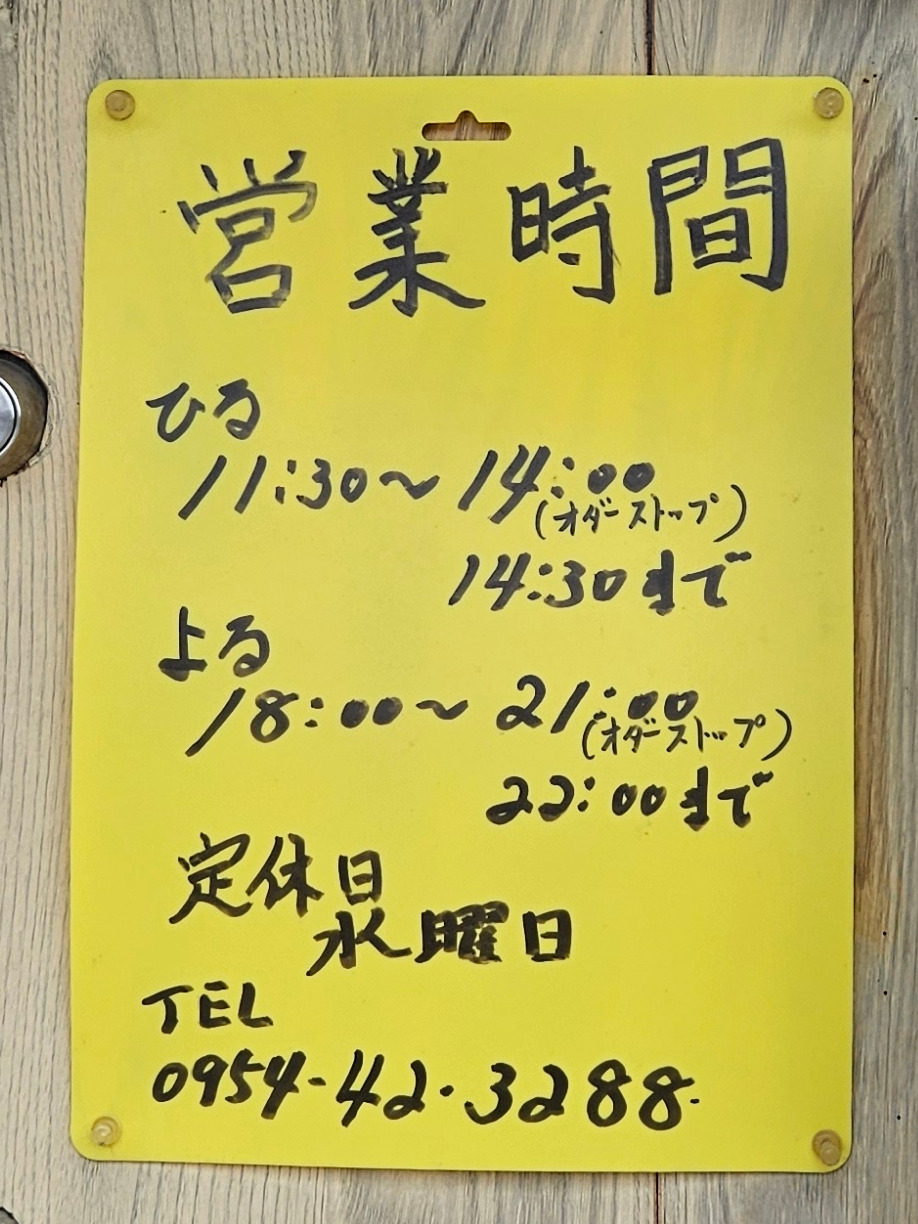 営業時間
ひる
11:30～14:00
(オダーストップ)
14:30まで
よる
18:00～21:00
(オダーストップ)
22:00まで
定休日
水曜日
TEL
0954-42-3288.